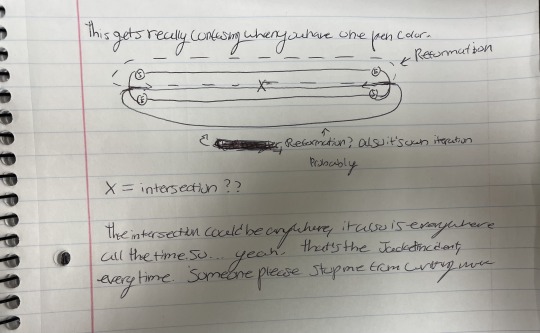 This gets really confusing when you have one pen color.
Reformation
S E
X
E S
Reformation? also it's own iteration
Probably
X = intersection ??
The intersection could be anywhere, it also is everywhere
all the time so... yeah. that's the
every time. Someone please stop me from